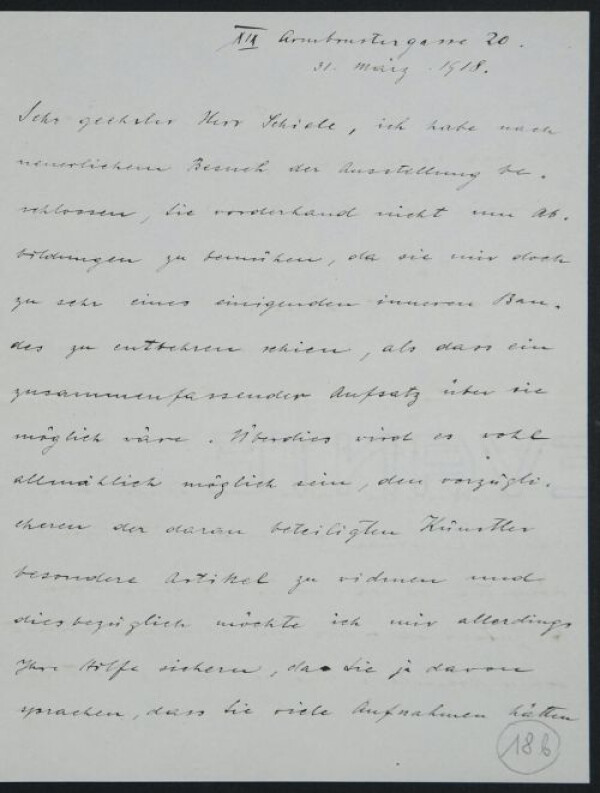 XIX Armbrustergasse 20.
31. März 1918.
Sehr geehrter Herr Schiele, ich habe nach
neuerlichem Besuch der Ausstellung be-
schlossen, Sie vorderhand nicht um Ab-
bildungen zu bemühen, da sie mir doch
zu sehr eines einigenden inneren Ban-
des zu entbehren schien, als dass ein
zusammenfassender Aufsatz über sie
möglich wäre. Überdies wird es wohl
allmählich möglich sein, den vorzügli-
cheren der daran beteiligten Künstler
besondere Artikel zu widmen und
diesbezüglich möchte ich mir allerdings
Ihre Hilfe sichern, da Sie ja davon
sprachen, dass Sie viele Aufnahmen hätten
186